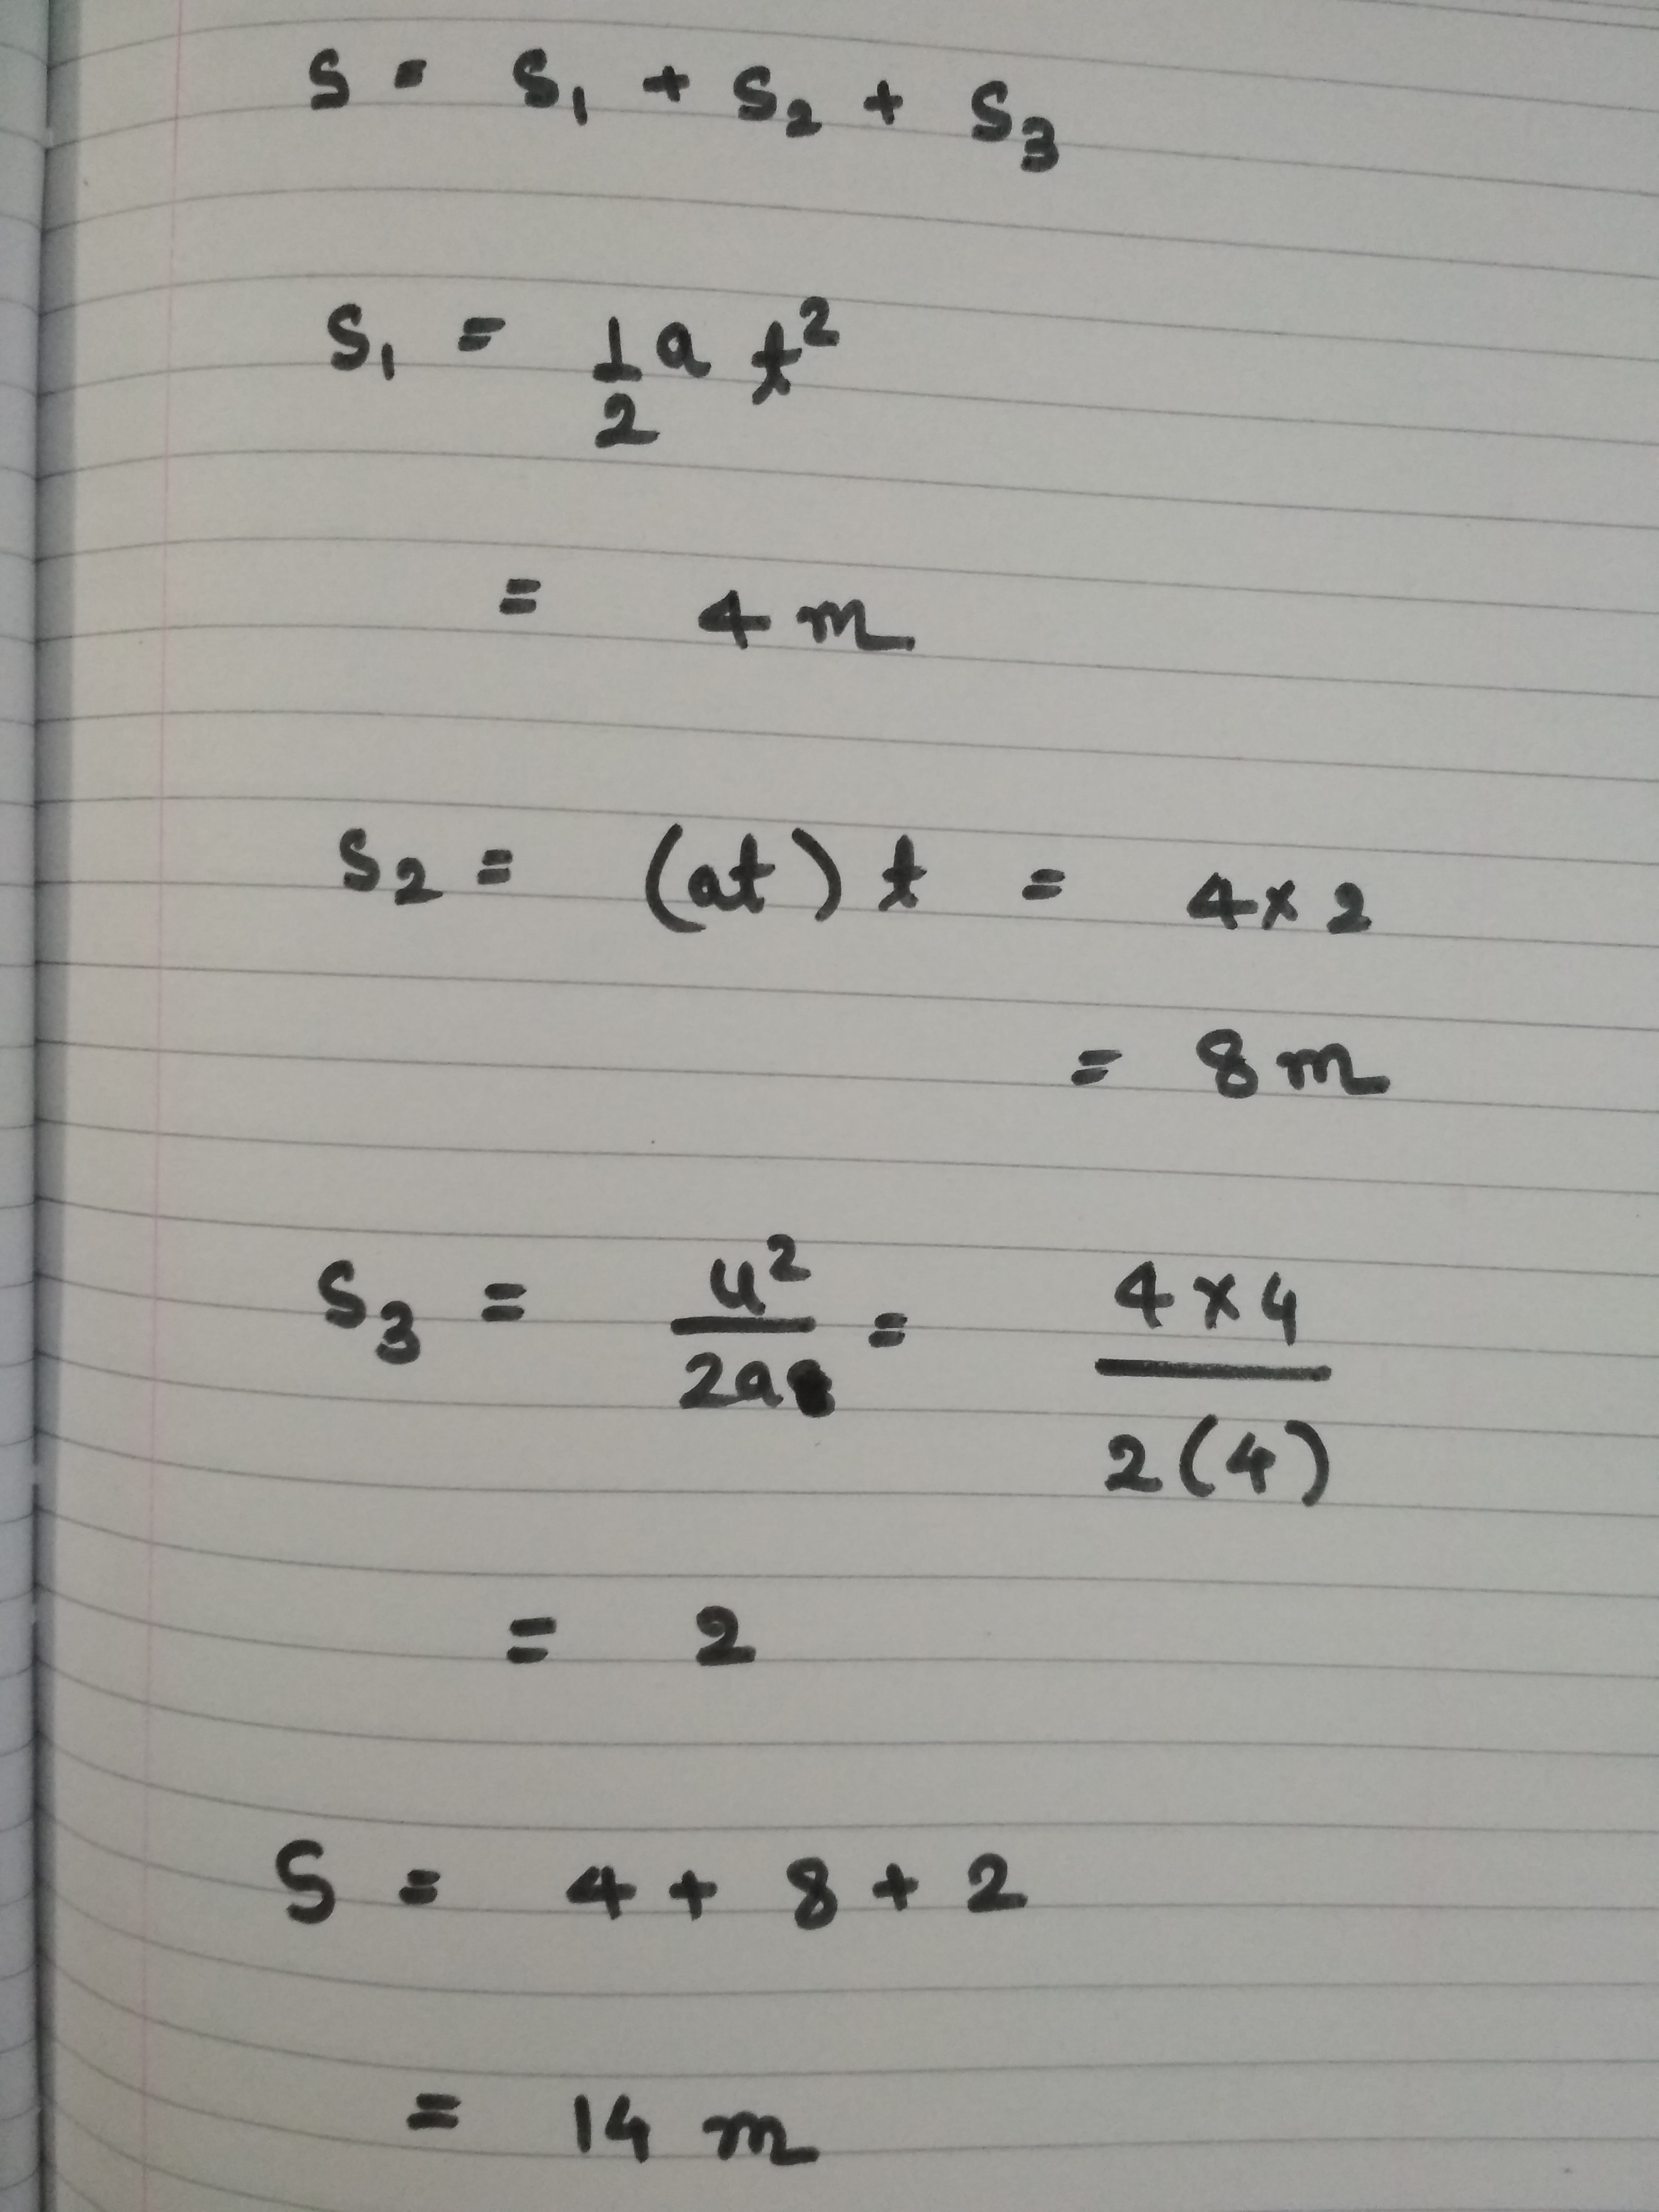 S = S₁ + S₂ + S₃
S₁ = 1/2 a t²
= 4 m
S₂ = (at) t = 4 × 2
= 8 m
S₃ = u²/2a = 4 × 4/2(4)
= 2
S = 4 + 8 + 2
= 14 m